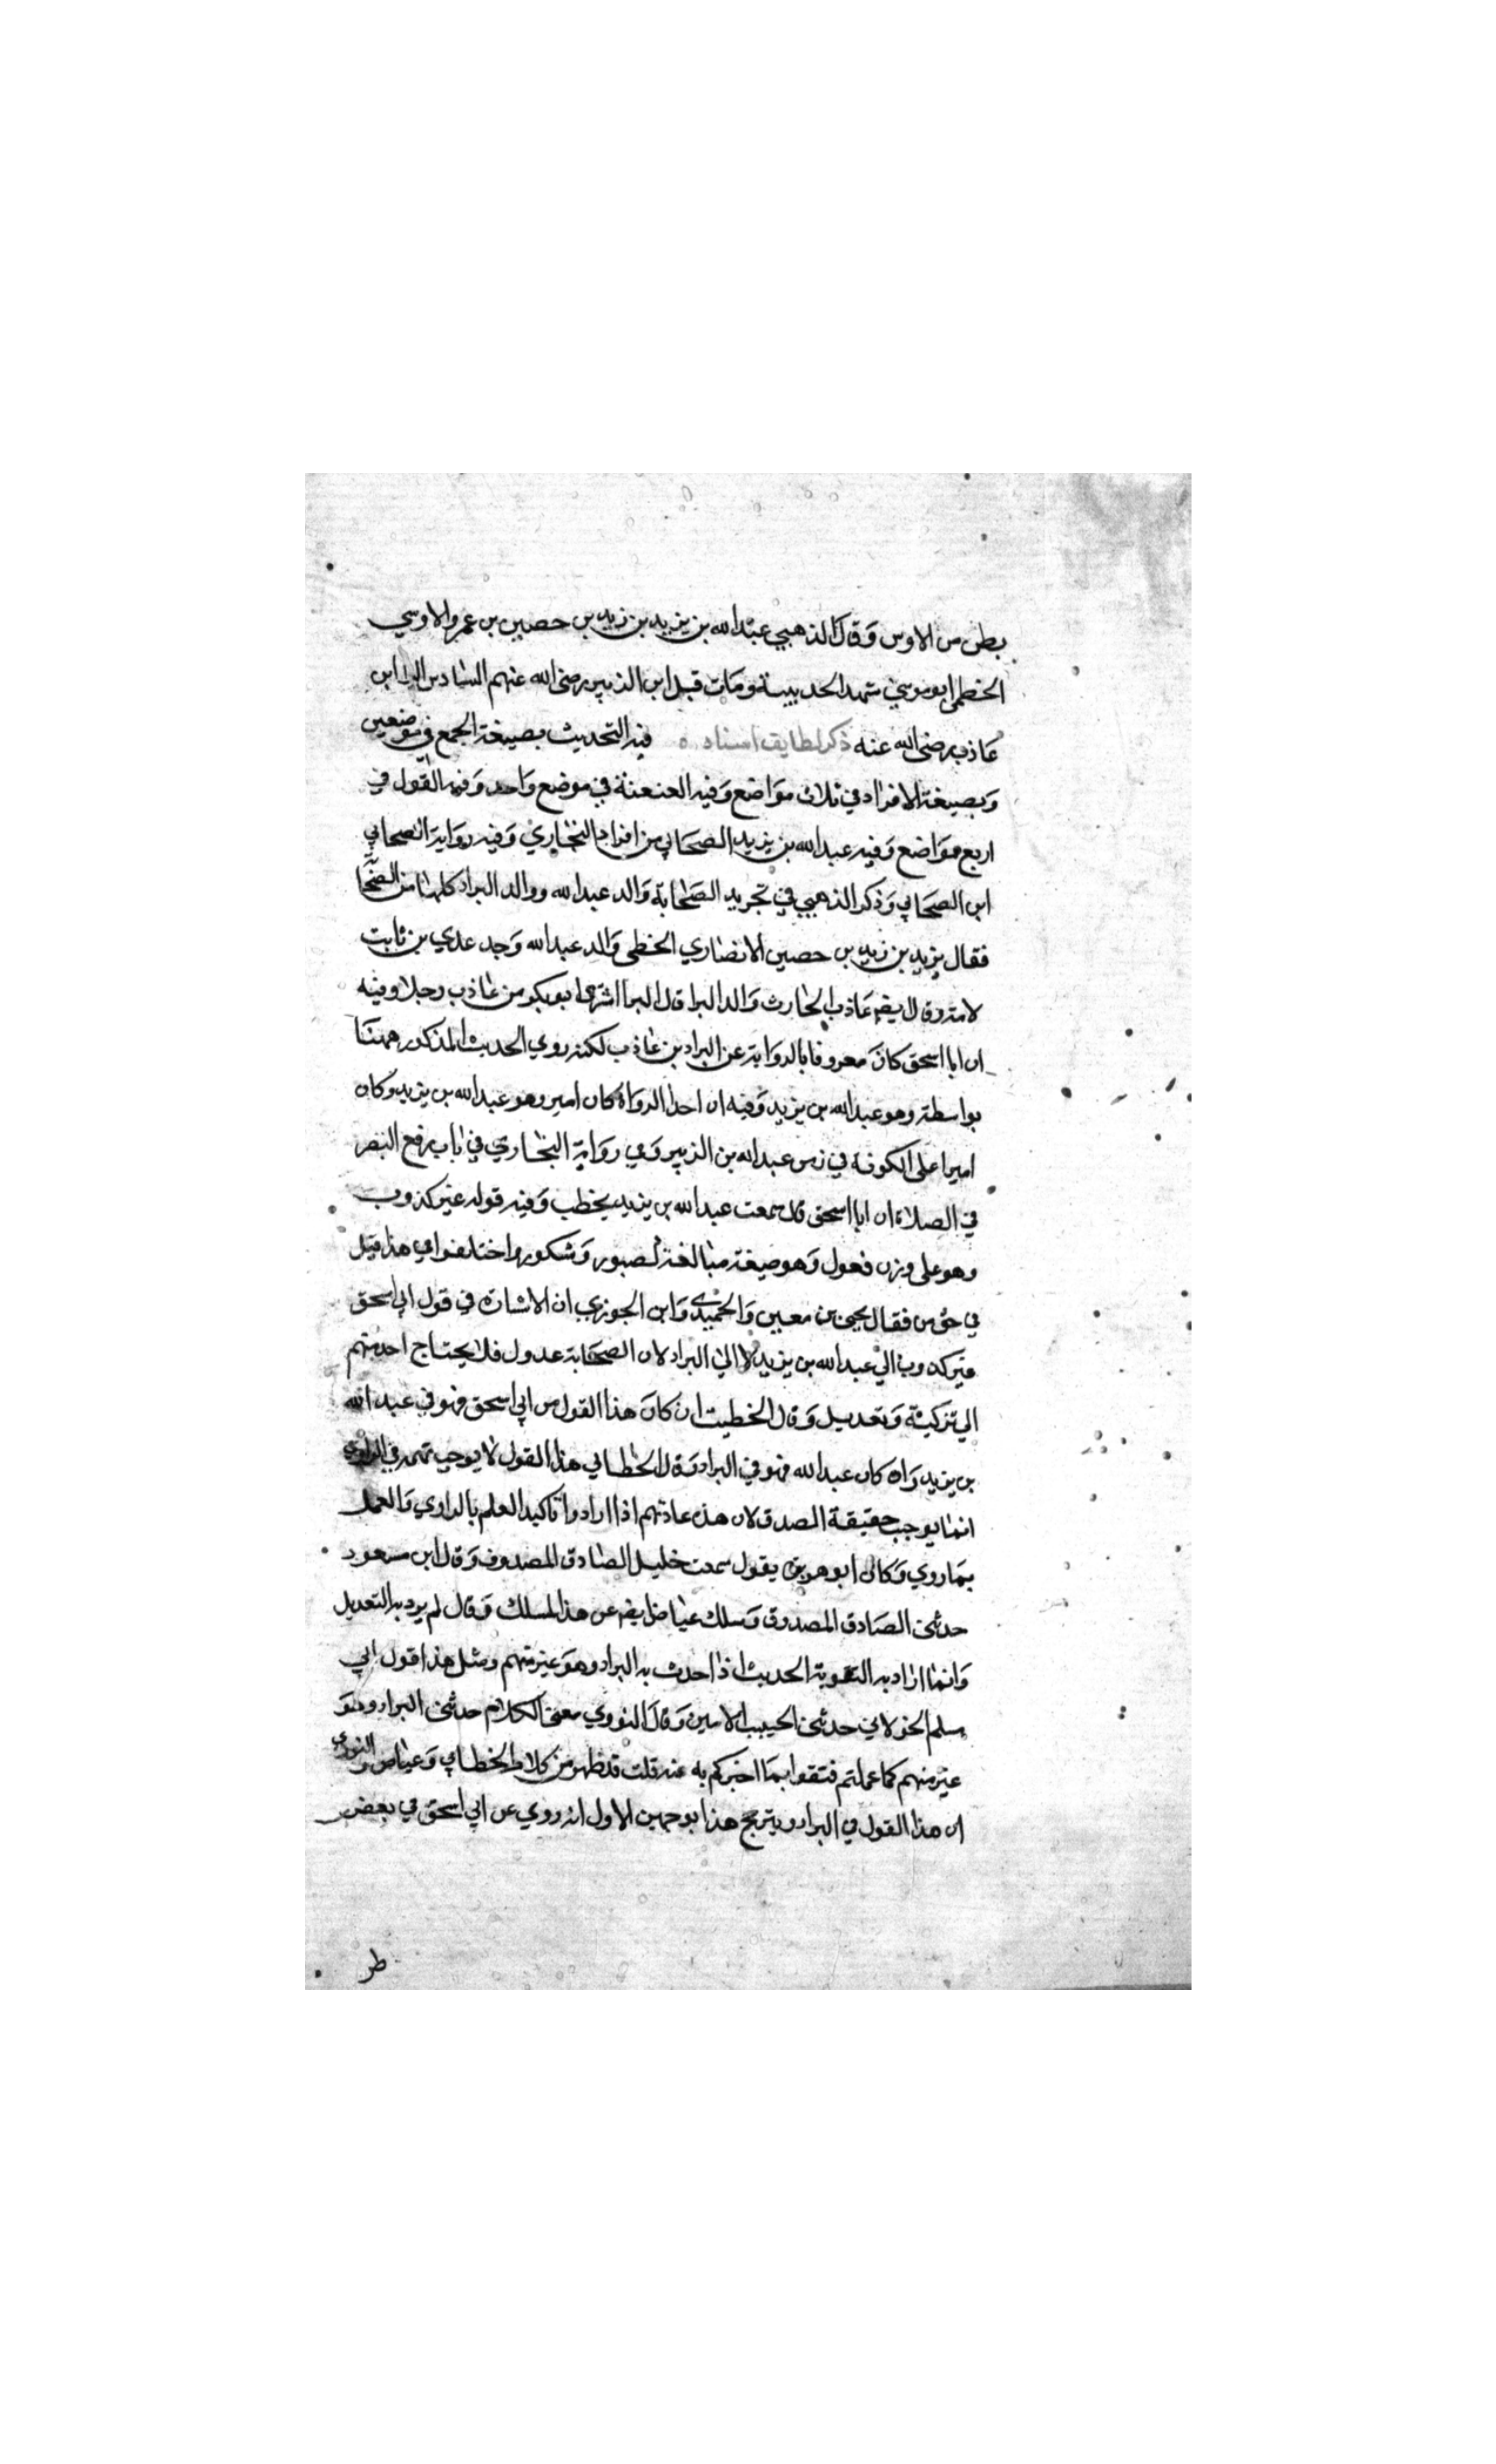 بطن من الاوس وقال الذهبي عبد الله بن يزيد بن زيد بن حصين بن عمرو الاوسي
الخطمي ابو موسي شهد الحديبية ومات قبل ابن الزبير رضى الله عنهم السادس البرا ابن
عاذب رضى الله عنه ذكر لطايف اسناده فيه التحديث بصيغة الجمع في موضعين
وبصيغة الافراد في ثلاث مواضع وفيه العنعنة في موضع واحد وفيه القول في
اربع مواضع وفيه عبد الله بن يزيد الصحابي من افراد البخاري وفيه رواية الصحابي
ابن الصحابي وذكر الذهبي في تجريد الصحابة والد عبد الله ووالد البراء كلاهما من الصحا
فقال يزيد بن زيد بن حصين الانصاري الخطمي والد عبد الله وجد عدي بن ثابت
لامه وقال ايضا عاذب الحارث والد البرا قال البرا اشترى ابو بكر من عاذب رحلا وفيه
ان ابا اسحق كان معروفا بالرواية عن البراء بن عاذب لكنه روي الحديث المذكور ههنا
بواسطة وهو عبد الله بن يزيد وفيه ان احد الرواة كان امير وهو عبد الله بن يزيد وكان
اميرا على الكوفة في زمن عبد الله بن الزبير وفي رواية البخاري في باب رفع البصر
في الصلاة ان ابا اسحق قال سمعت عبد الله بن يزيد يخطب وفيه قوله غير كذوب
وهو على وزن فعول وهو صيغة مبالغة كصبور وشكور واختلفوا في هذا قيل
في حق من فقال يحيى بن معين والحميدي وابن الجوزي ان الاشارة في قول ابي اسحق
غير كذوب الي عبد الله بن يزيد لا الي البراء لان الصحابة عدول فلا يحتاج احد منهم
الي تزكية وتعديل وقال الخطيب ان كان هذا القول من ابي اسحق فهو في عبد الله
بن يزيد وان كان عبد الله فهو في البراء وقال الخطابي هذا القول لا يوجب تهمة في الراوي
انما يوجب حقيقة الصدق لان هذه عادتهم اذا ارادوا تاكيد العلم بالراوي والعمل
بما روي وكان ابو هريرة يقول سمعت خليل الصادق المصدوق وقال ابن مسعود
حدثني الصادق المصدوق وسلك عياض ايضا عن هذا المسلك وقال لم يرد به التعديل
وانما اراد به التقوية الحديث اذا احدث به البراء وهو غير متهم ومثل هذا قول ابي
مسلم الخولاني حدثني الحبيب الامين وقال النووي معنى الكلام حدثني البراء وهو
غير متهم كما عملتم فثقوا بما اخبركم به عنه قلت قد ظهر من كلام الخطابي وعياض والنووي
ان هذا القول في البراء ويترجح هذا بوجهين الاول انه روي عن ابي اسحق في بعض
طر